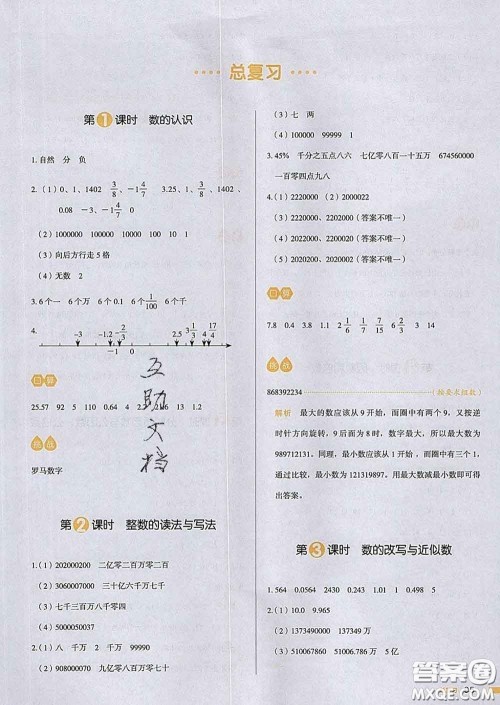 总复习
第1课时 数的认识
1.自然 分 负
2.(1)0、1、1402 3/8、-1 4/7 3.25、1、3/8、
0.08 -3、-1 4/7
(2)1000000 100000 10000 100 10 1
(3)向后方行走5格
(4)无数 2
3.6个一 6个万 6个0.1 6个1/100 6个千
4.
-3 -1 2/3 -1 0
口算
25.57 92 5 110 0.64 4 2 2 0.6
挑战
罗马数字
第2课时 整数的读法与写法
1.(1)202000200 二亿零二百万零二百
(2)3060007000 三十亿六千万七千
(3)七千三百万八千零四
(4)5000050037
2.(1)八 千万 2 千万 99990
(2)908000070 九亿零八百万零七十
(3)七 两
(4)100000 99999 1
3.45% 千分之五点八六 七亿零八百一十五万 674560000
一百零四点九八
4.(1)2220000 (2)2000022
(3)2022000、2202000(答案不唯一)
(4)2022000、2202000(答案不唯一)
(5)2020200、2200020(答案不唯一)
口算
7.8 0.4 3.8 1.1 1.2
挑战
868392234
解析 最大的数应该从9开始，而圈中有两个9，又按逆
时针方向旋转，9后面为8时，数字最大，所以最大数为
989712131。同理，最小数应该从1开始，而圈中有三个1，
通过比较，最小数为121319897。用最大数减最小数即可得
出答案。
第3课时 数的改写与近似数
1.564 0.0564 2430 0.243 1.5 0.15
2.(1)10.0 9.965
(2)1373490000 137349万
(3)510067860 51006.786万 5亿
互助文档
答案圈
MXQE.COM